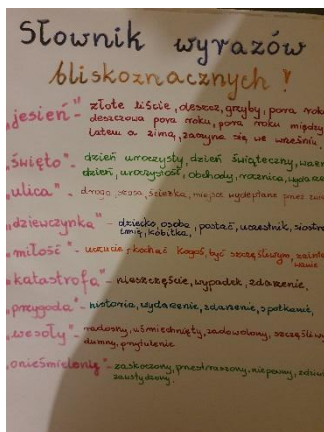 Słownik wyrazów
bliskoznacznych !
"jesień" - złote liście, deszcz, grzyby, pora roku
deszczowa pora roku, pora roku między
latem a zimą, zaczyna się we wrześniu.
"święto" - dzień uroczysty, dzień świąteczny,
dzień, uroczystość, obchody, rocznica,
"ulica" - droga, szosa, ścieżka, miejsce wydeptane przez
"dziewczynka" - dziecko, osoba, postać, uczestnik, siostra
imię, kobitka,
"miłość" - uczucie, kochać kogoś, być szczęśliwym,
"katastrofa" - nieszczęście, wypadek, zdarzenie,
"przygoda" - historia, wydarzenie, zdarzenie, spotkanie,
"wesoły" - radosny, uśmiechnięty, zadowolony,
dumny, przytulenie
"onieśmielony" - zaskoczony, przestraszony, niepewny,
zawstydzony.